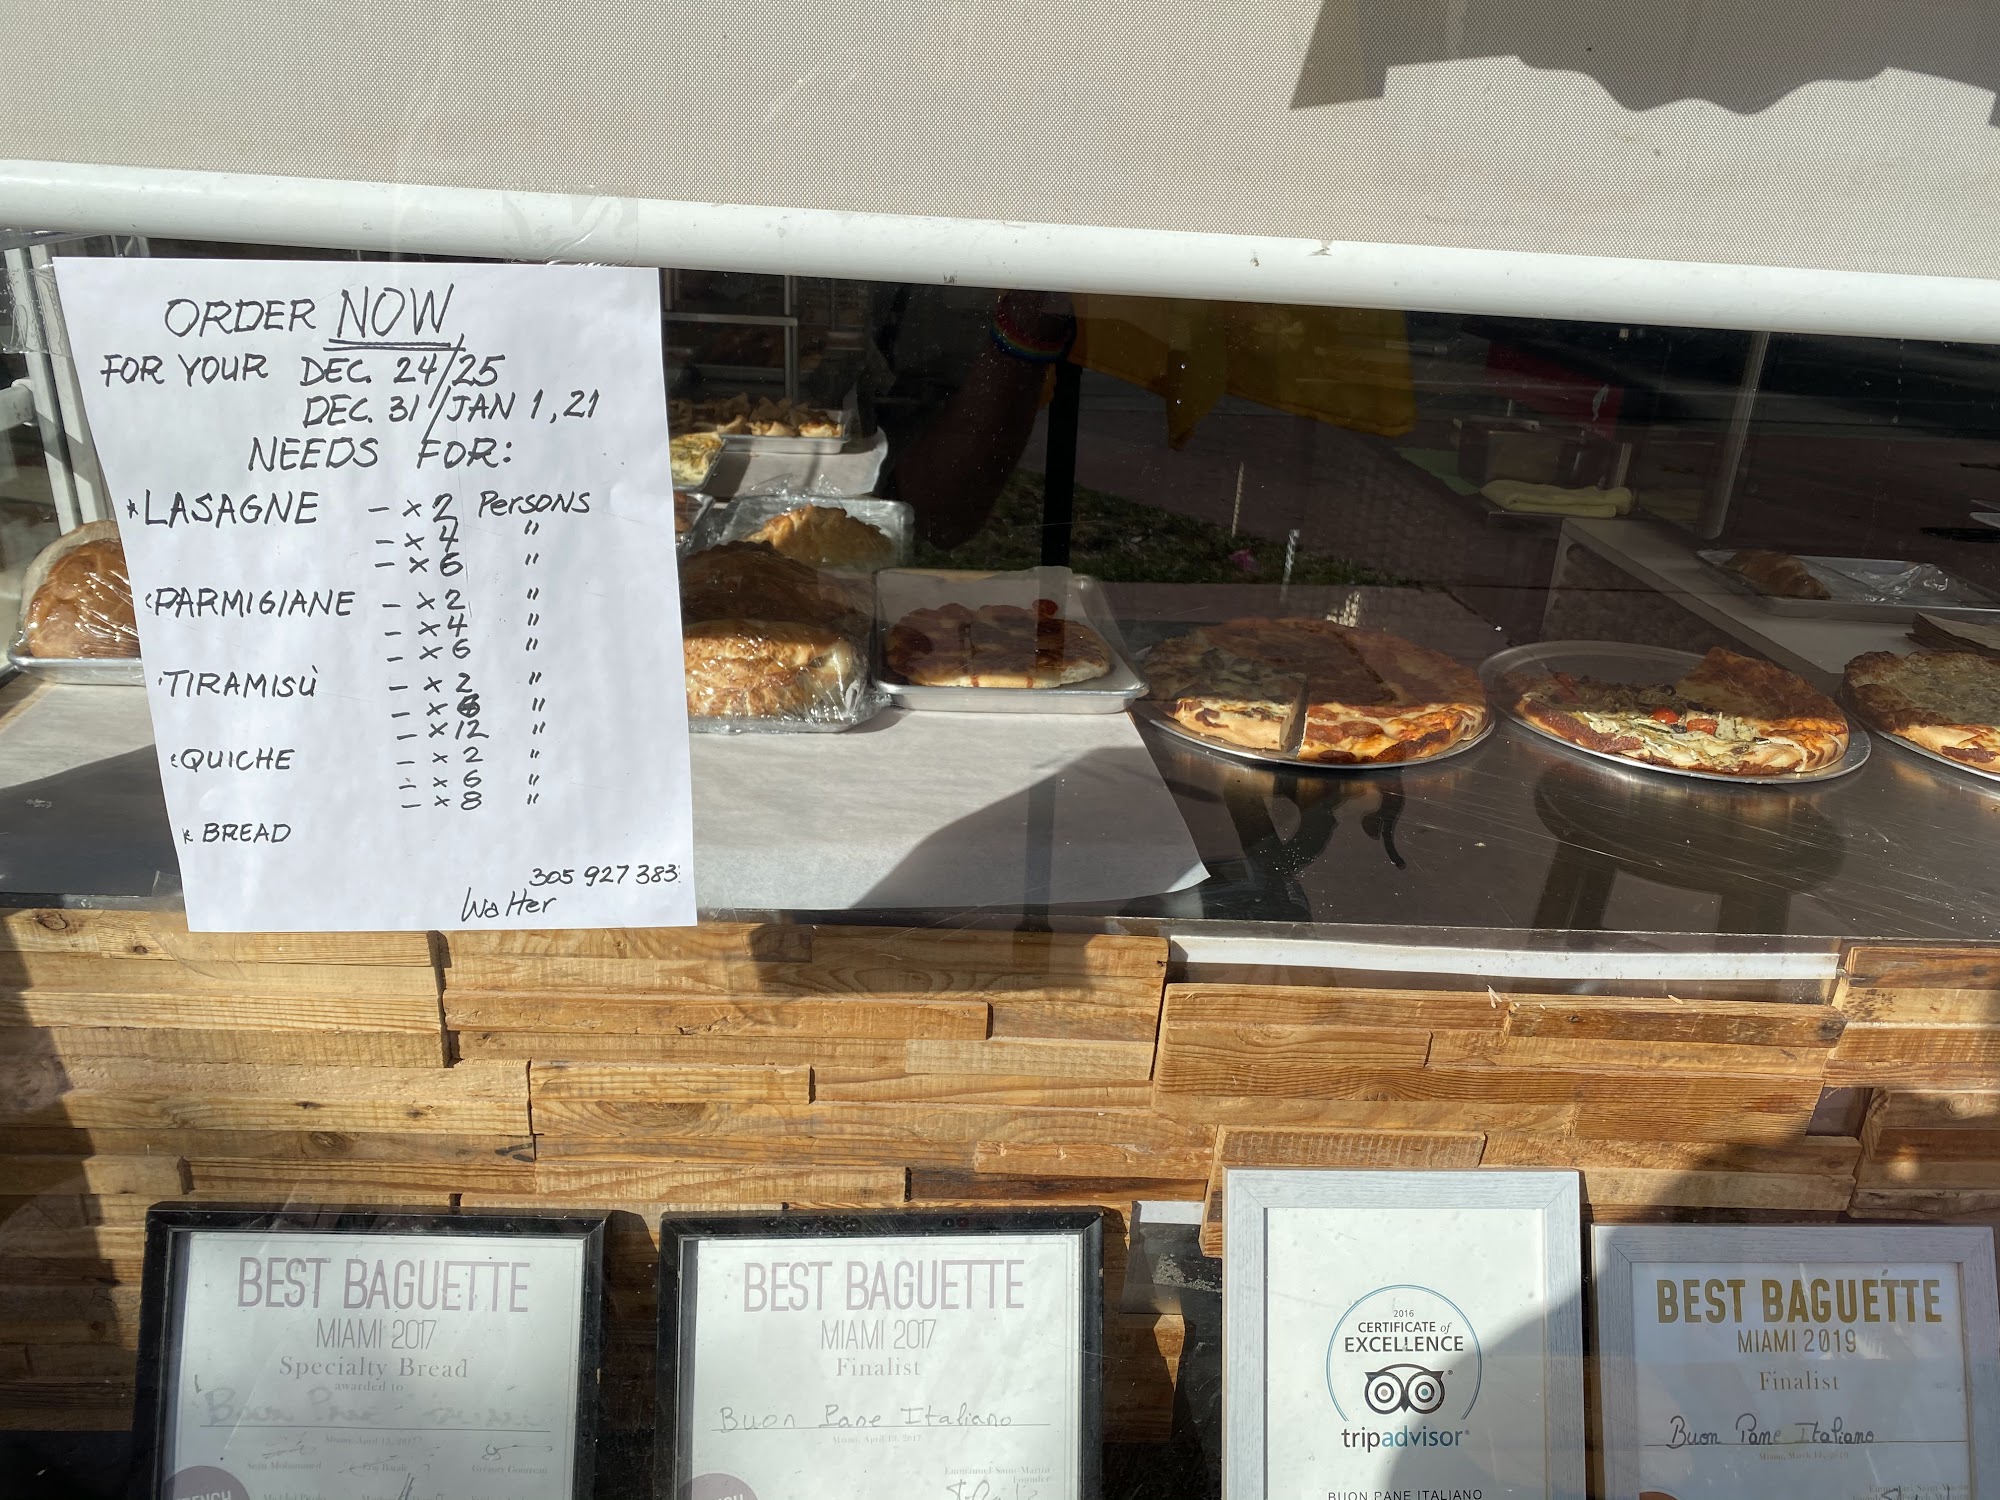 ORDER NOW
FOR YOUR DEC. 24/25
DEC. 31/JAN 1, 21
NEEDS FOR:
* LASAGNE - x 2 PERSONS
- x 4 "
- x 6 "
PARMIGIANE - x 2 "
- x 4 "
- x 6 "
TIRAMISÙ - x 2 "
- x 6 "
- x 12 "
QUICHE - x 2 "
- x 6 "
- x 8 "
* BREAD
305 927 383
Walter
BEST BAGUETTE
MIAMI 2017
Specialty Bread
awarded to
Buon Pane
Miami, April 13, 2017
BEST BAGUETTE
MIAMI 2017
Finalist
Buon Pane Italiano
Miami, April 13, 2017
Emmanuel Saint-Martin
Founder
2016
CERTIFICATE of
EXCELLENCE
tripadvisor®
BUON PANE ITALIANO
BEST BAGUETTE
MIAMI 2019
Finalist
Buon Pane Italiano